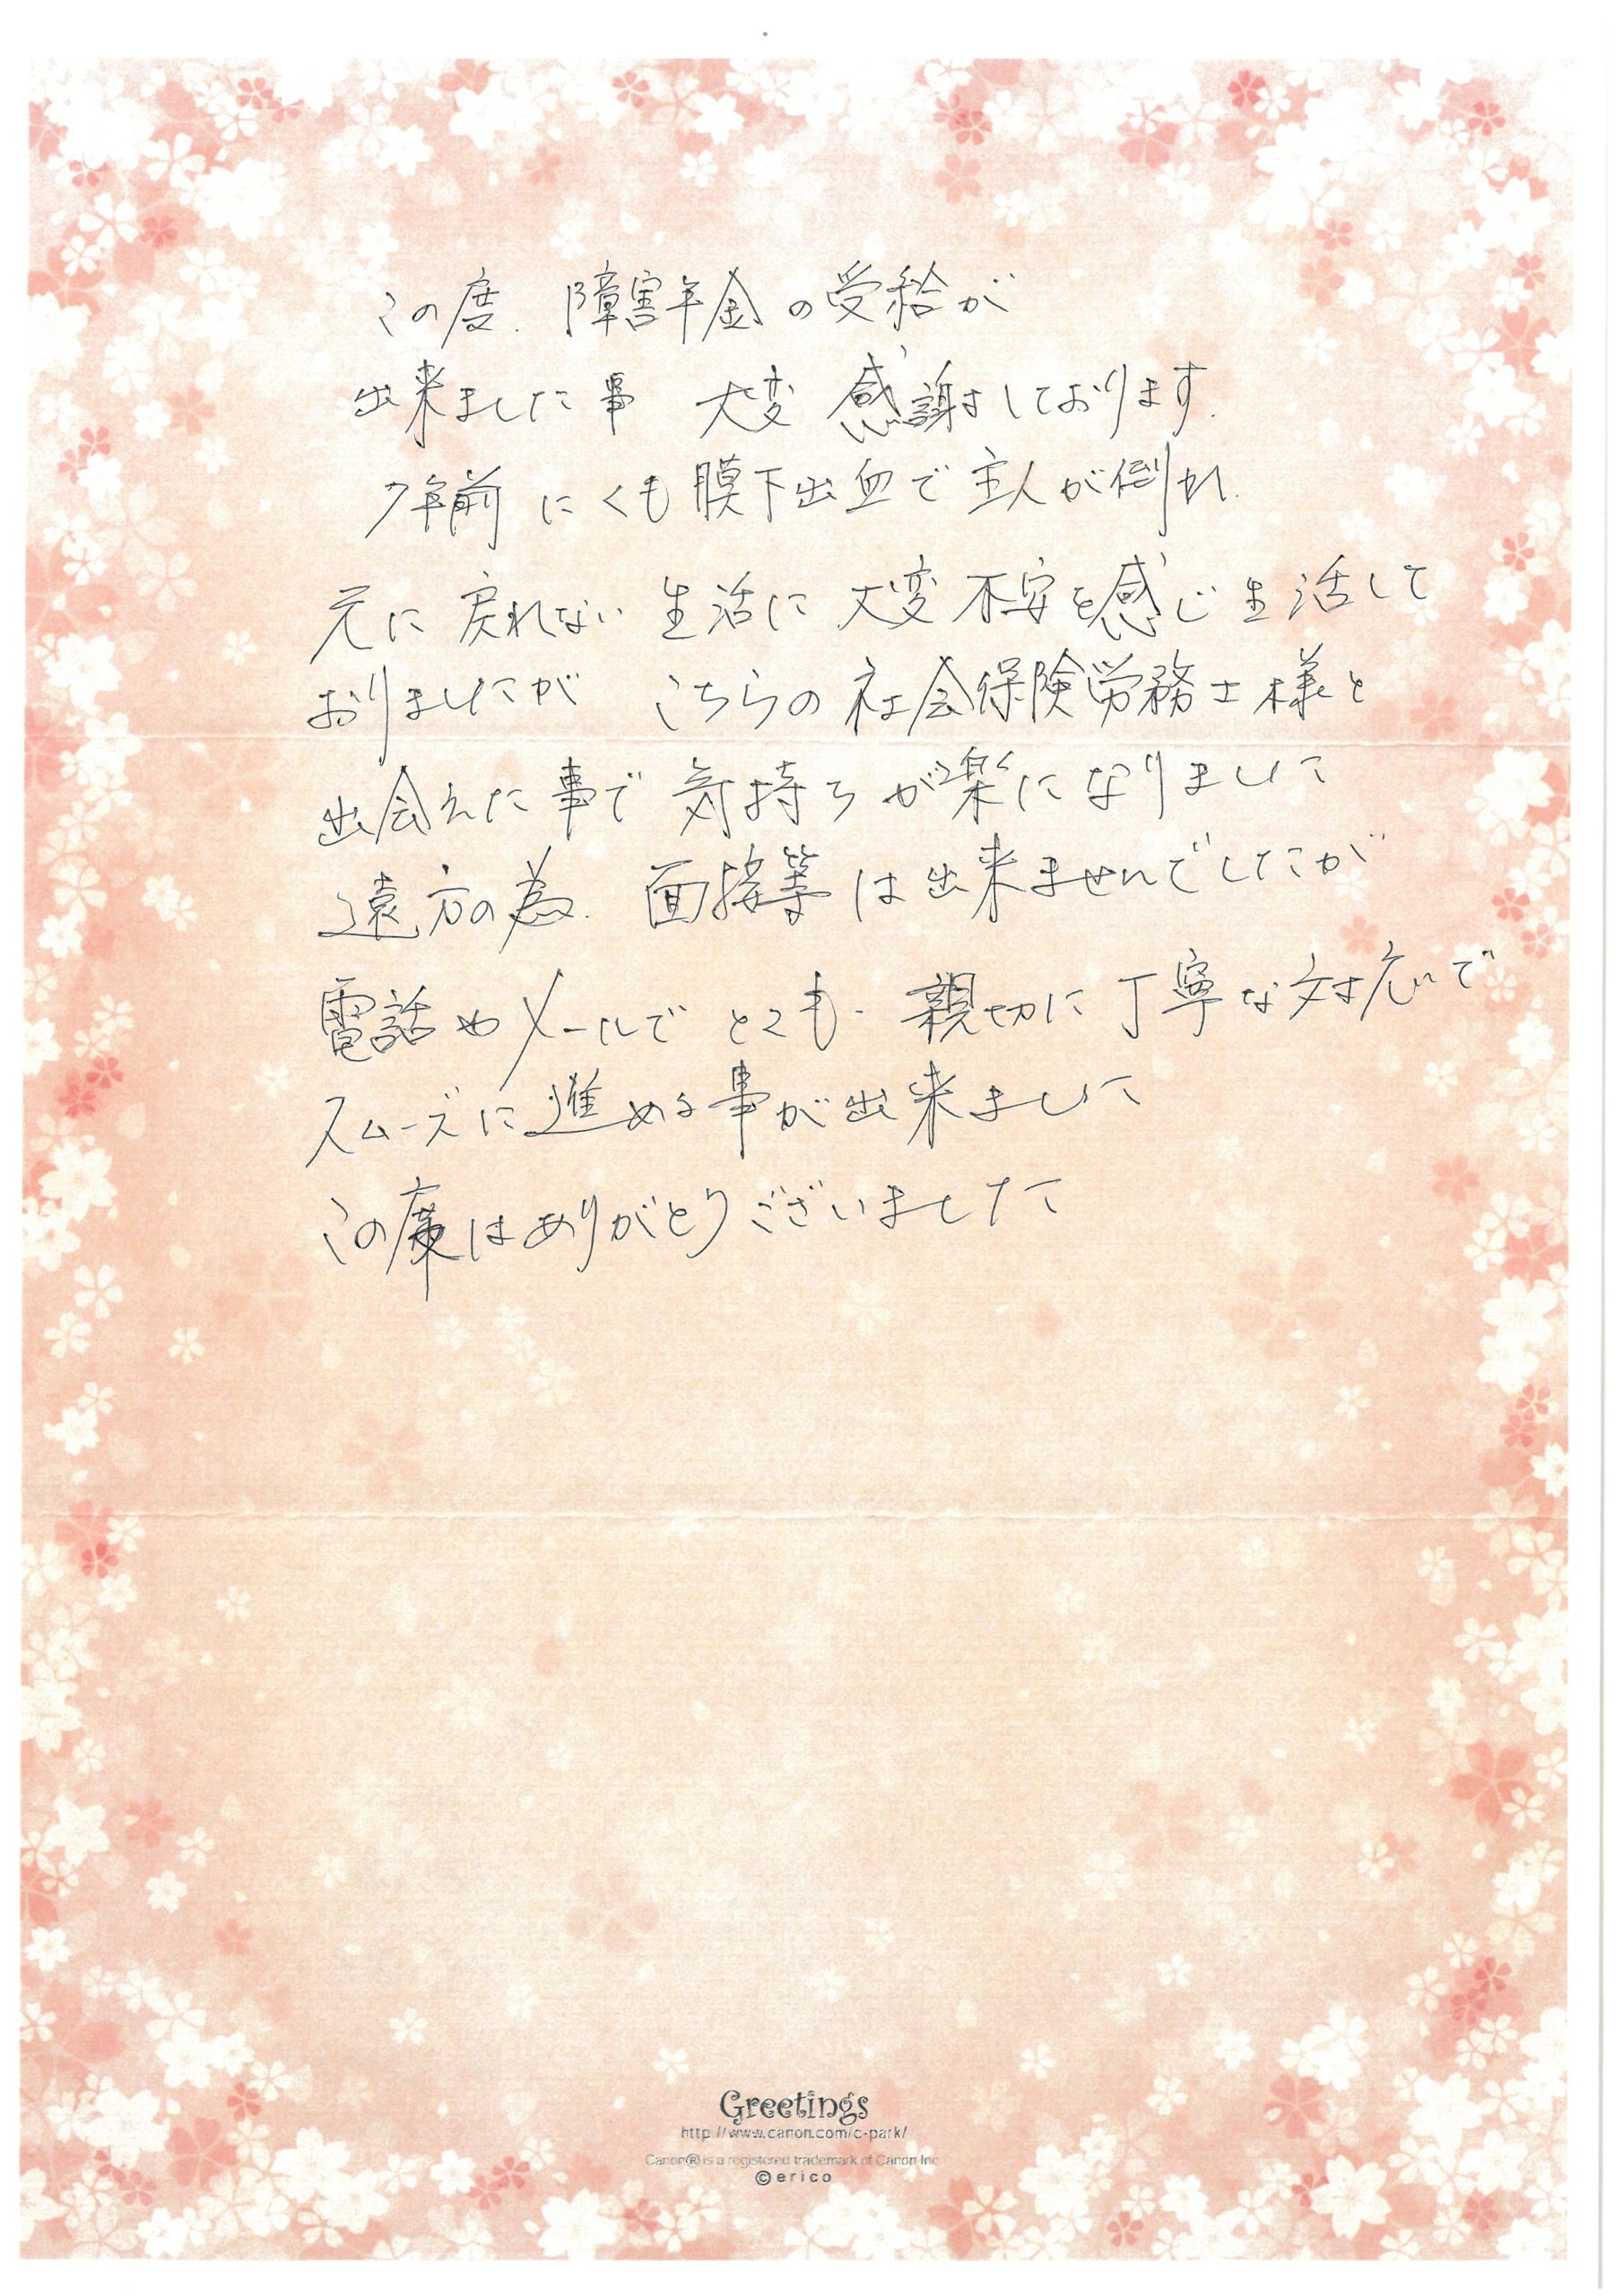 この度、障害年金の受給が
出来ました事 大変 感謝をしております。
7年前にくも膜下出血で主人が倒れ、
元に戻れない生活に大変不安を感じ生活して
おりましたが こちらの社会保険労務士様と
出会えた事で気持ちが楽になりました
遠方の為、面接等は出来ませんでしたが
電話やメールでとても、親切に丁寧な対応で
スムーズに進める事が出来ました
この度はありがとうございました
Greetings
http://www.canon.com/c-park/
Canon® is a registered trademark of Canon Inc
©erico